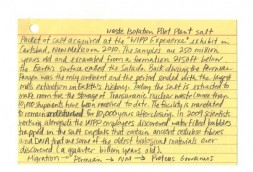 Waste Isolation Pilot Plant Salt
Packet of salt acquired at the "WIPP Experience" exhibit in
Carlsbad, New Mexico in 2010. The samples are 250 million
years old and excavated from a formation 2150ft below
the Earth's surface called the Salado. Back during the Permian
Pangea was the only continent and the period ended with the largest
mass extinction in Earth's history. Today the salt is extracted to
make room for the storage of Transuranic nuclear waste. More than
shipments have been received to date. The facility is mandated
to remain for 10,000 years after closing. In 2009 scientists
working alongside the WIPP employees discovered water filled bubbles
trapped in the salt crystals that contain ancient cellulose fibers
and DNA that are some of the oldest biological materials ever
discovered (a quarter billion years old).
Migration → Permian → NM →